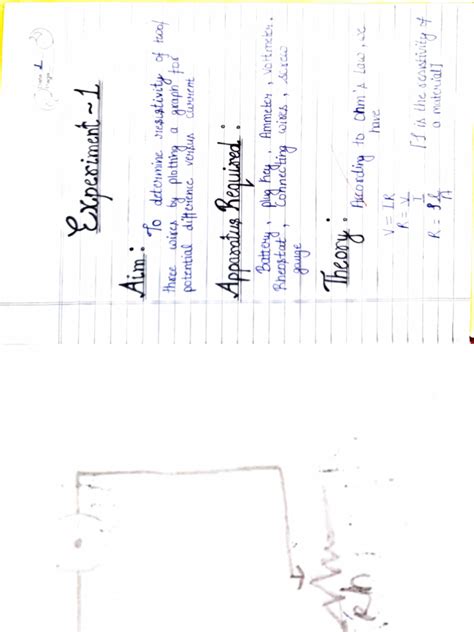 Experiment ~ 1
Aim : To determine resistivity of two/
three wires by plotting a graph for
potential difference versus current
Apparatus Required :
Battery, plug key, Ammeter, voltmeter,
Rheostat, Connecting wires, screw
gauge
Theory : According to Ohm's Law, we
have
V = IR
R = V/I
R = ρl/A [ρ is the resistivity of
a material]
Rh